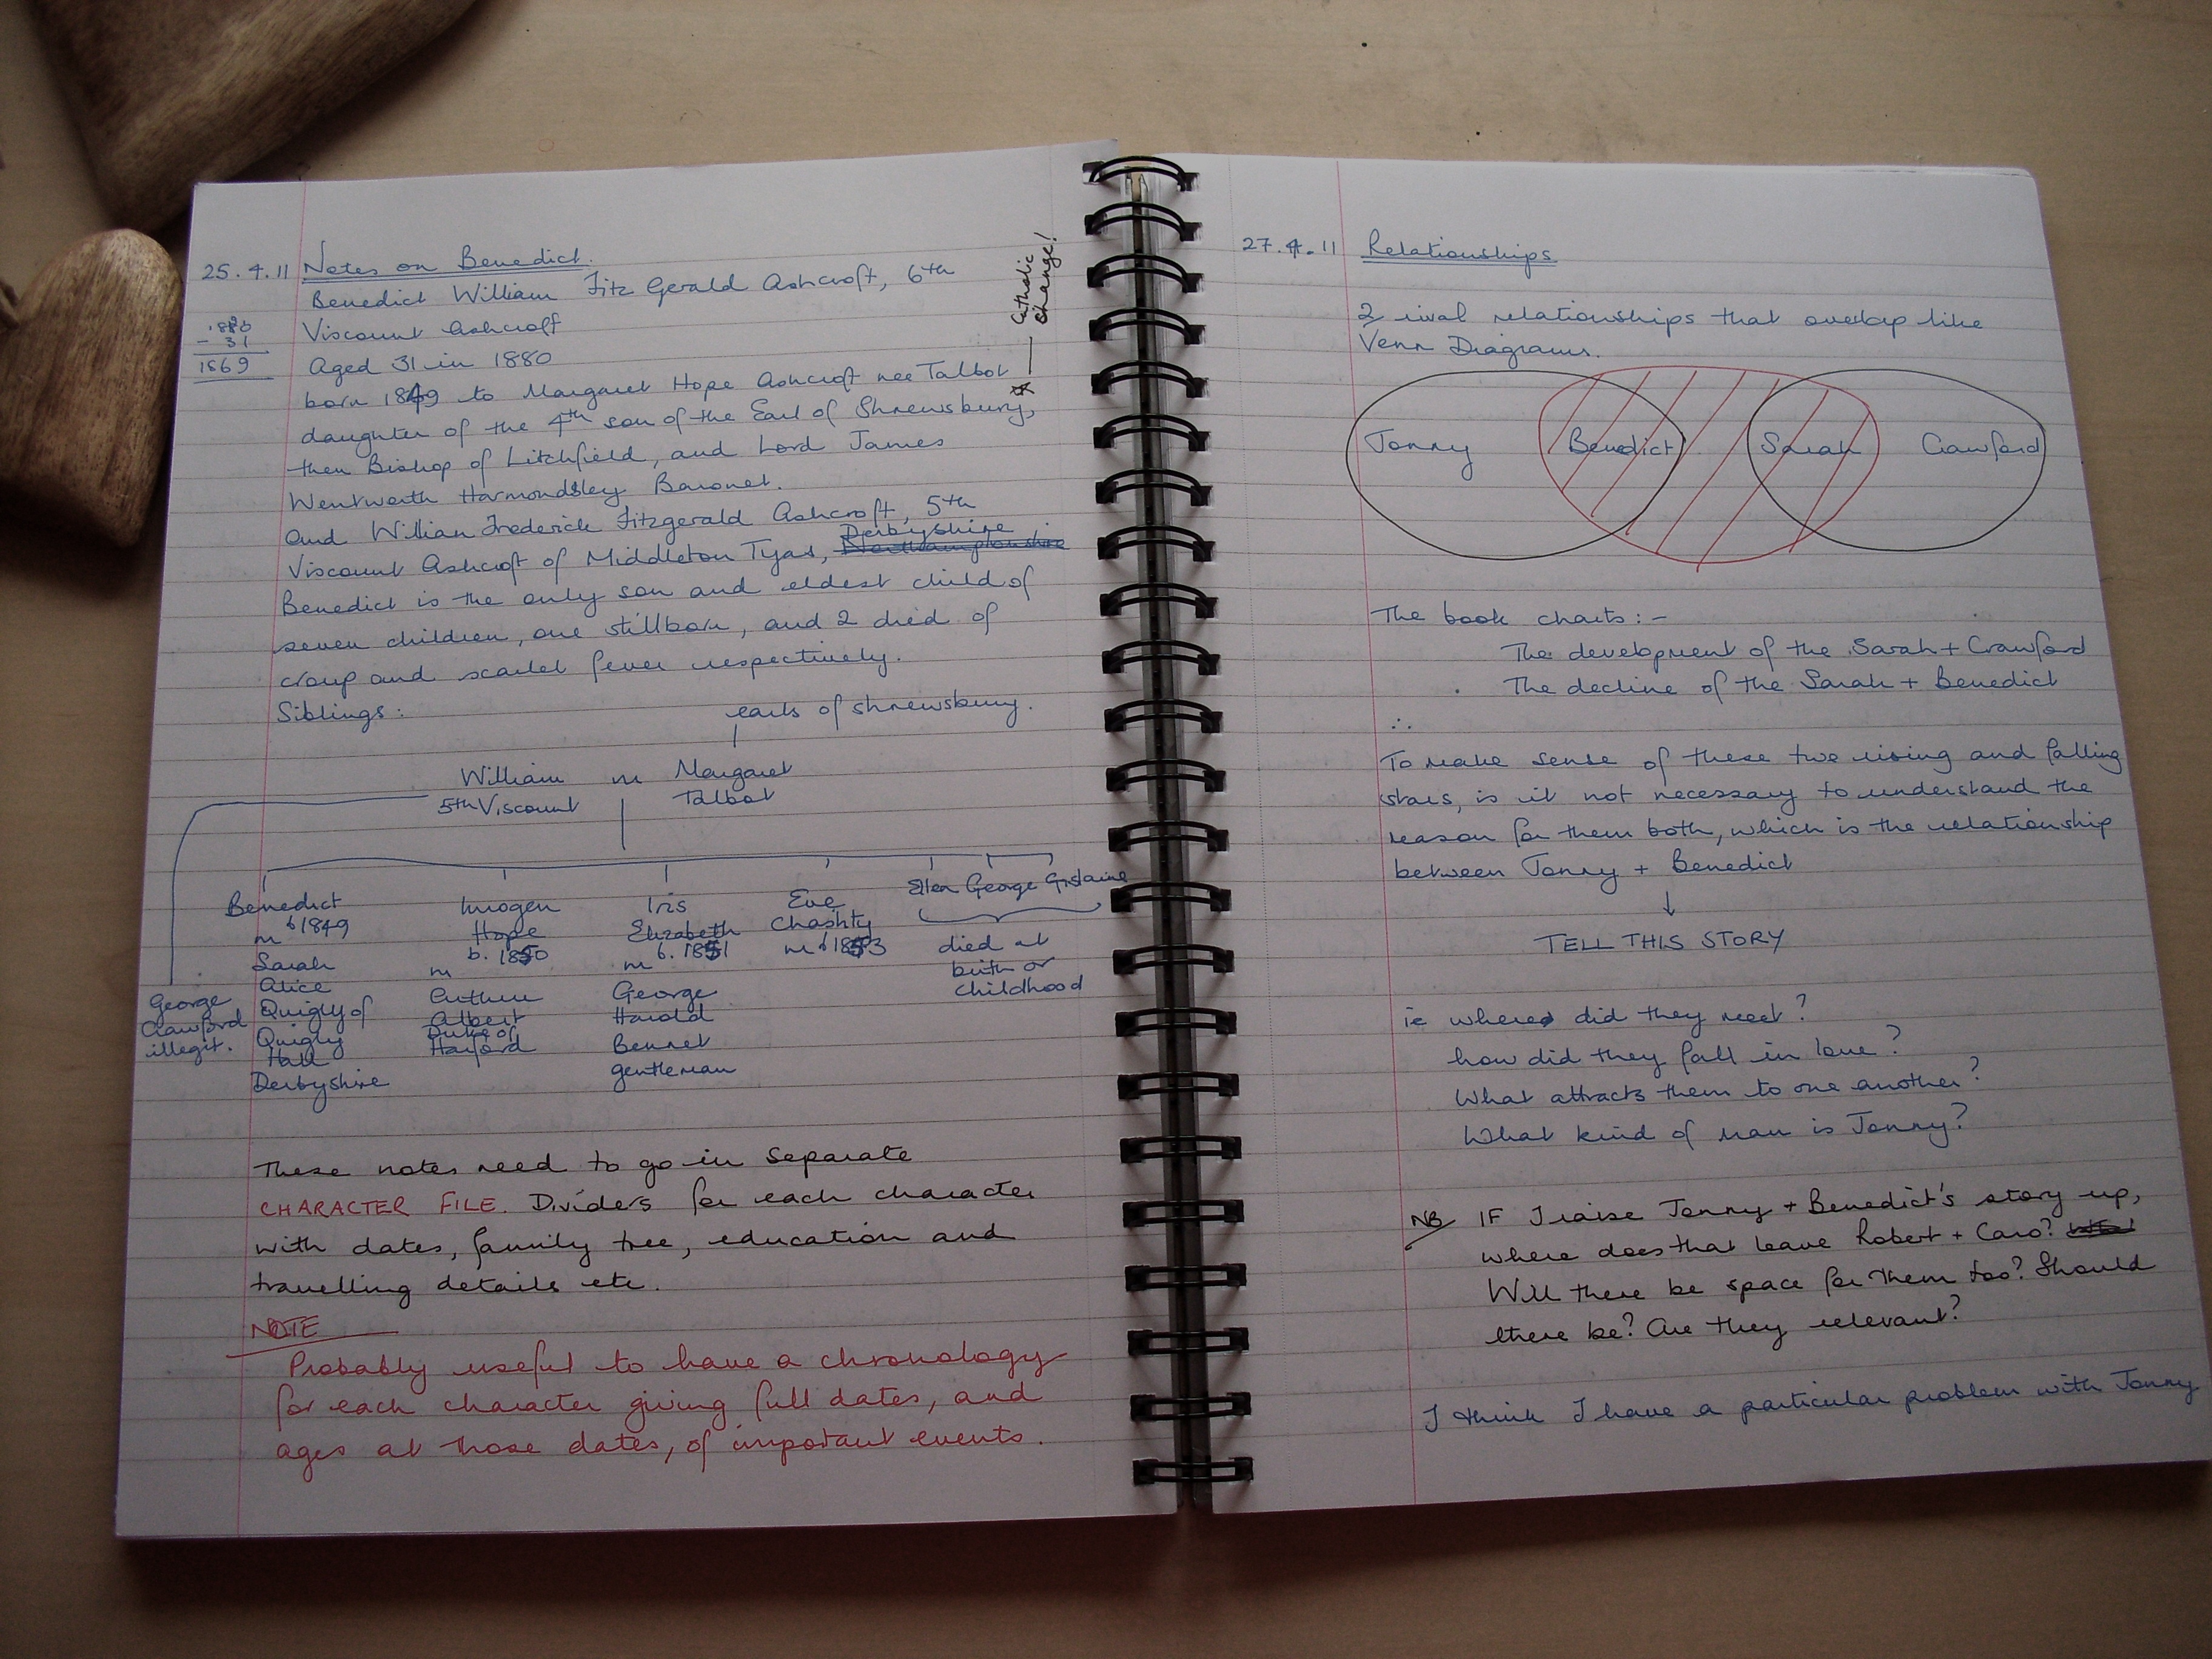 25.4.11 Notes on Benedict.
Benedict William Fitz Gerald Ashcroft, 6th
Viscount Ashcroft
1880
- 31
1869
Aged 31 in 1880
born 1849 to Margaret Hope Ashcroft nee Talbot
daughter of the 4th son of the Earl of Shrewsbury,
then Bishop of Litchfield, and Lord James
Wentworth Harmondsley Baronet.
Catholic
change!
and William Frederick Fitzgerald Ashcroft, 5th
Derbyshire
Viscount Ashcroft of Middleton Tyas, Northamptonshire.
Benedict is the only son and eldest child of
seven children, one stillborn, and 2 died of
croup and scarlet fever respectively.
Siblings:
earls of Shrewsbury.
William m Margaret
5th Viscount Talbot
Benedict
b 1849
m
Sarah
Alice
Quigly of
Quigly
Hall
Derbyshire
Imogen
Hope
b. 1850
m
Arthur
Albert
Duke of
Harford
Iris
Elizabeth
b. 1851
m
George
Harold
Bennet
gentleman
Eve
Chastity
m b 1853
Ellen George Gislaine
died at
birth or
childhood
George
Crawford
illegit.
These notes need to go in separate
CHARACTER FILE. Dividers for each character
with dates, family tree, education and
travelling details etc.
NOTE
Probably useful to have a chronology
for each character giving full dates, and
ages at those dates, of important events.
27.4.11 Relationships
2 rival relationships that overlap like
Venn Diagrams.
Jonny Benedict Sarah Crawford
The book charts:-
The development of the Sarah + Crawford
The decline of the Sarah + Benedict
∴
To make sense of these two rising and falling
stars, is it not necessary to understand the
reason for them both, which is the relationship
between Jonny + Benedict
↓
TELL THIS STORY
ie where did they meet?
how did they fall in love?
What attracts them to one another?
What kind of man is Jonny?
NB IF I raise Jonny + Benedict's story up,
where does that leave Robert + Caro?
Will there be space for them too? Should
there be? Are they relevant?
I think I have a particular problem with Jonny